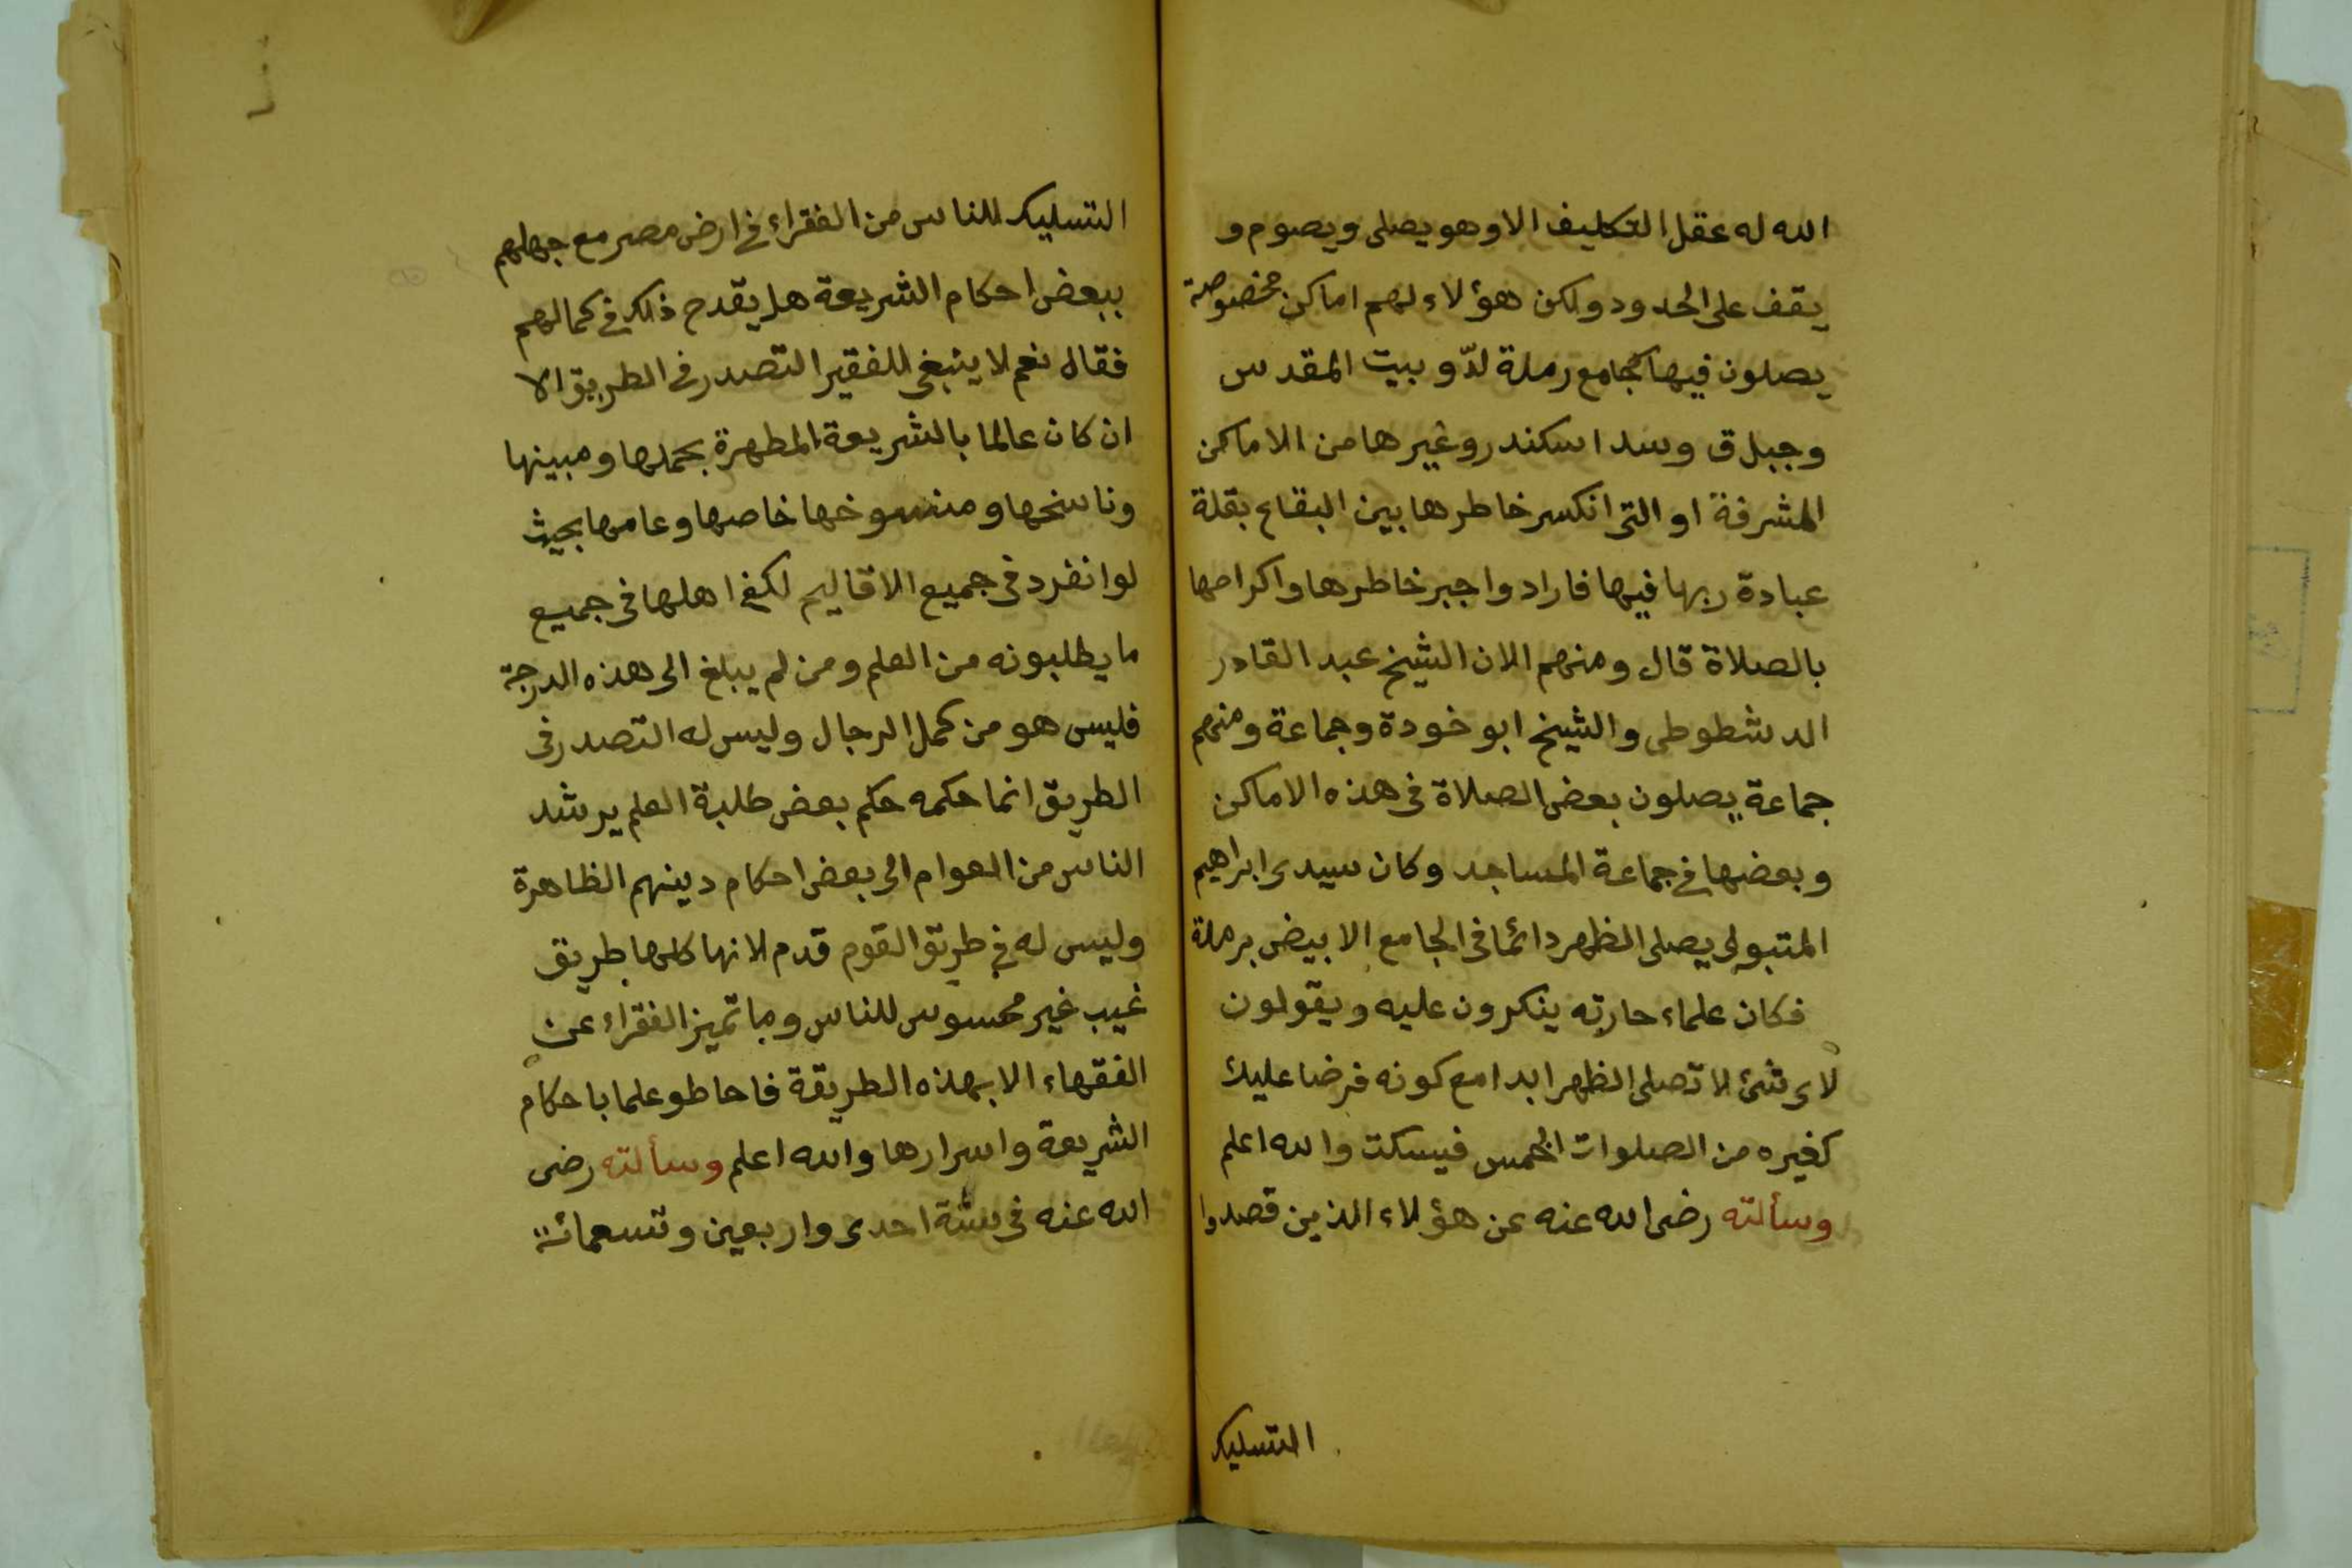 الله له عقل التكليف الا وهو يصلى ويصوم و
يقف على الحدود ولكن هؤلاء لهم اماكن مخصوصة
يصلون فيها كجامع رملة لدّ وبيت المقدس
وجبل ق وسد اسكندر وغيرها من الاماكن
المشرفة او التى انكسر خاطرها بين البقاع بقلة
عبادة ربها فيها فارادوا جبر خاطرها واكرامها
بالصلاة قال ومنهم الان الشيخ عبد القادر
الدشطوطى والشيخ ابو خودة وجماعة ومنهم
جماعة يصلون بعض الصلاة فى هذه الاماكن
وبعضها فى جماعة المساجد وكان سيدى ابراهيم
المتبولى يصلى الظهر دائما فى الجامع الابيض برملة
فكان علماء حارته ينكرون عليه ويقولون
لاى شئ لا تصلى الظهر ابدا مع كونه فرضا عليك
كغيره من الصلوات الخمس فيسكت والله اعلم
وسألته رضى الله عنه عن هؤلاء الذين قصدوا
التسليك
التسليك للناس من الفقراء فى ارض مصر مع جهلهم
ببعض احكام الشريعة هل يقدح ذلك فى كمالهم
فقال نعم لا ينبغى للفقير التصدر فى الطريق الا
ان كان عالما بالشريعة المطهرة بجملها ومبينها
وناسخها ومنسوخها خاصها وعامها بحيث
لو انفرد فى جميع الاقاليم لكفى اهلها فى جميع
ما يطلبونه من العلم ومن لم يبلغ الى هذه الدرجة
فليس هو من كمل الرجال وليس له التصدر فى
الطريق انما حكمه حكم بعض طلبة العلم يرشد
الناس من العوام الى بعض احكام دينهم الظاهرة
وليس له فى طريق القوم قدم لانها كلها طريق
غيب غير محسوس للناس وما تميز الفقراء عن
الفقهاء الا بهذه الطريقة فاحاطو علما باحكام
الشريعة واسرارها والله اعلم وسألته رضى
الله عنه فى سنة احدى واربعين وتسعمائة